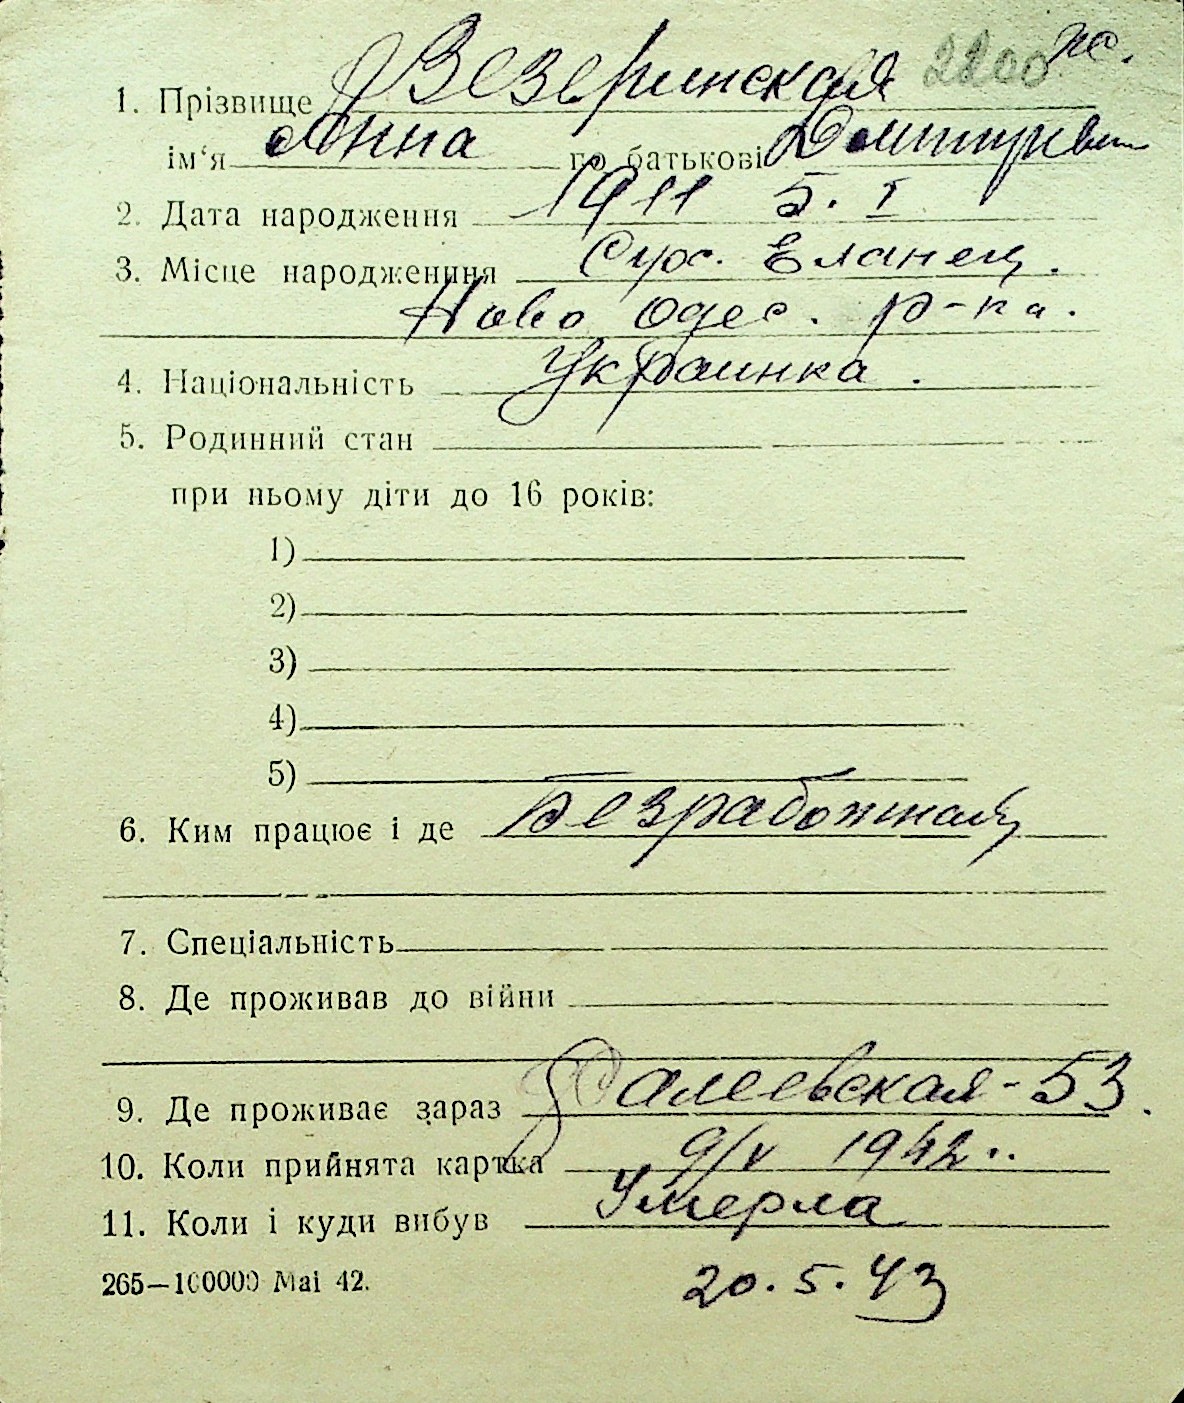 1. Прізвище Везеринская 2200 нс.
ім‘я Анна по батькові Дмитриевн
2. Дата народження 1911 5. I
3. Місце народженння Сух. Еланец.
Ново Одес. р-на.
4. Національність Украинка.
5. Родинний стан
при ньому діти до 16 років:
1)
2)
3)
4)
5)
6. Ким працює і де Безработная
7. Спеціальність
8. Де проживав до війни
9. Де проживає зараз Фалеевская-53.
10. Коли прийнята картка 9/V 1942..
11. Коли і куди вибув Умерла
265—100000 Mai 42. 20.5.43